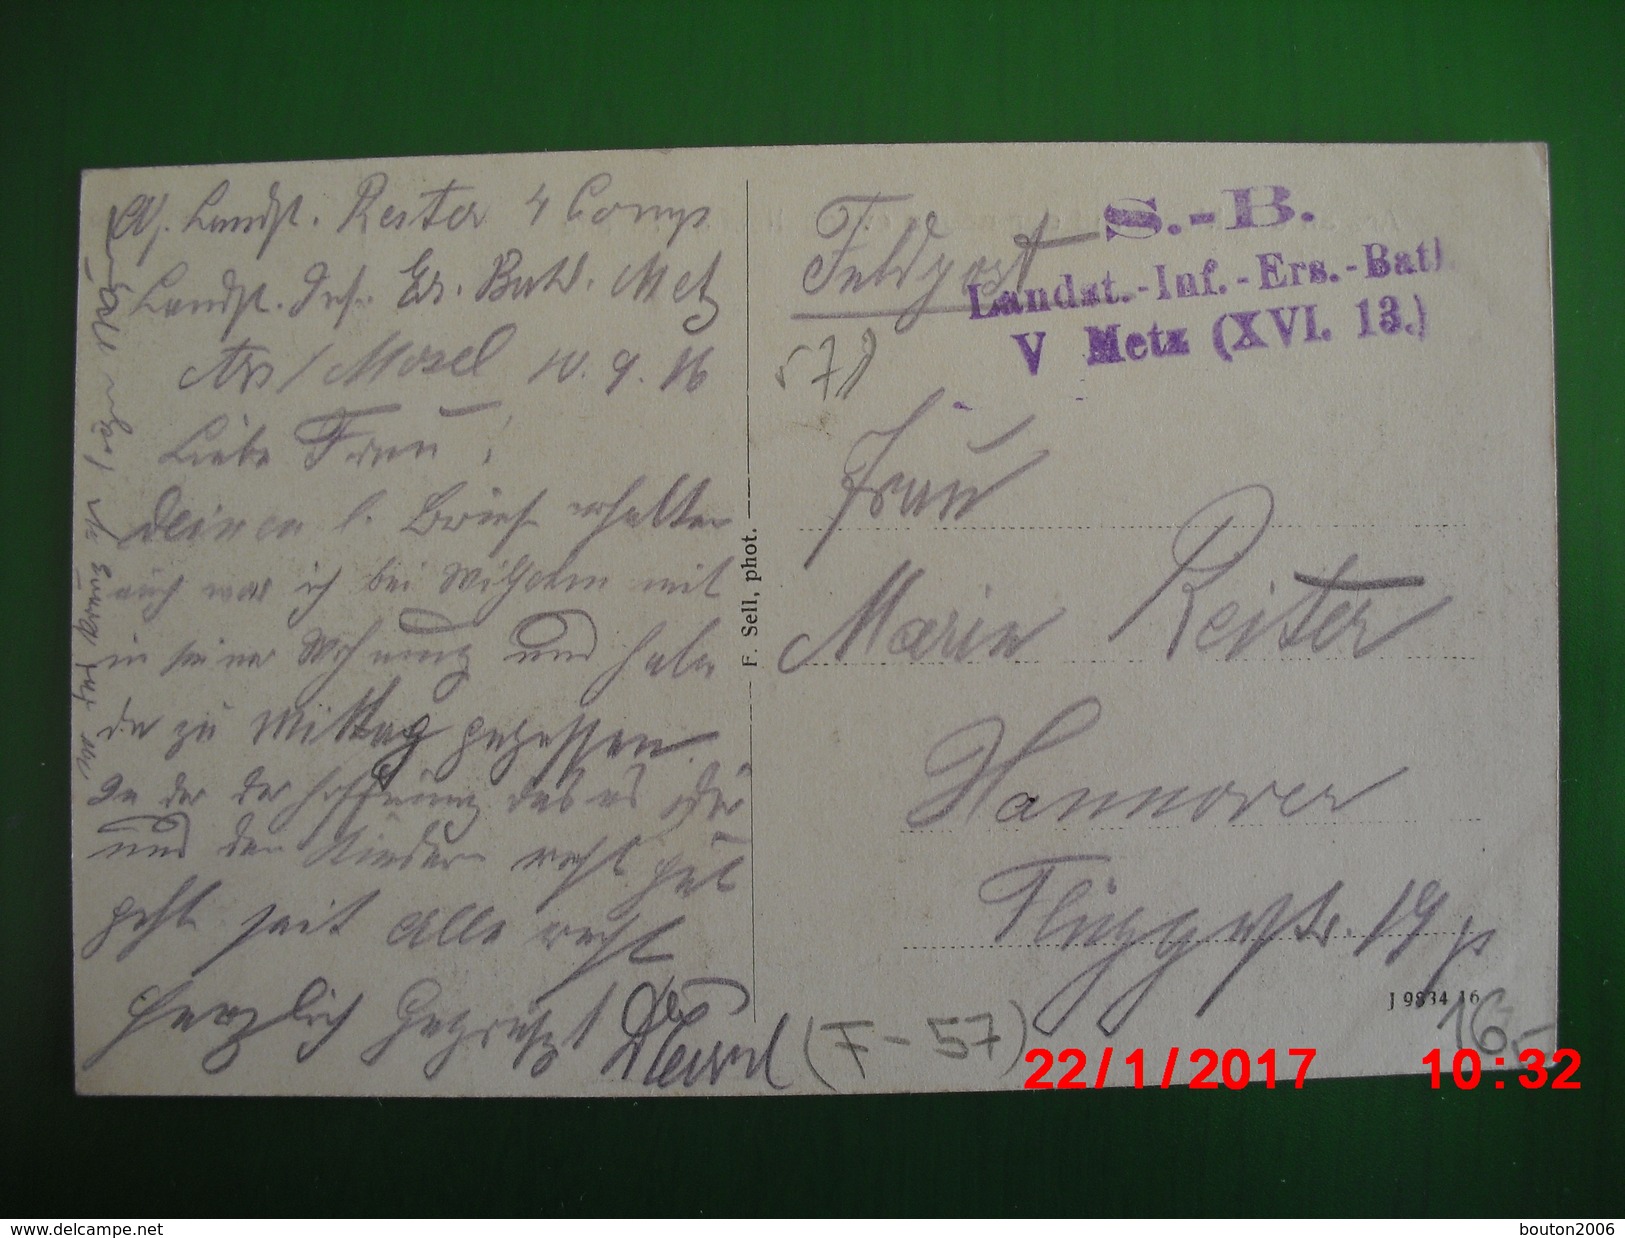 Landst. Reiter 4 Comp
Landst. Inf. Ers. Batl. Metz
Ars / Mosel 10. 9. 16
Liebe Frau!
deinen l. Brief erhalten
auch war ich bei Wilhelm mit
in seiner Wohnung und habe
da zu Mittag gegessen
In der der Hoffnung das es dir
und den Kindern recht gut
geht seit Alle recht
herzlich Gegrüßt
F. Sell, phot.
Feldpost
S.-B.
Landst.-Inf.-Ers.-Batl
V Metz (XVI. 13.)
578
Frau
Marie Reiter
Hannover
Flüggestr. 19
J 9834 16
16.-
(F-57)
22/1/2017 10:32
www.delcampe.net
bouton2006